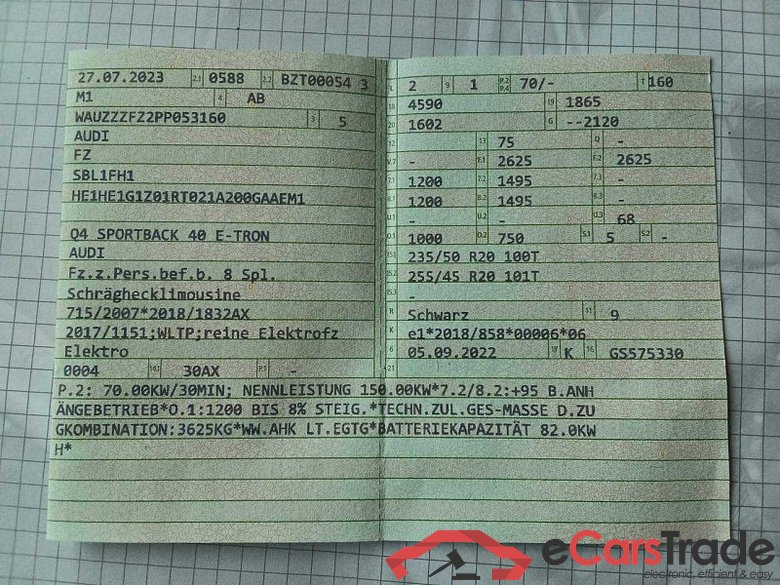 27.07.2023 2.1 0588 2.2 BZT00054 3
M1 4 AB
WAUZZZFZ2PP053160 3 5
AUDI
FZ
SBL1FH1
HE1HE1G1Z01RT021A200GAAEM1
Q4 SPORTBACK 40 E-TRON
AUDI
Fz.z.Pers.bef.b. 8 Spl.
Schräghecklimousine
715/2007*2018/1832AX
2017/1151;WLTP;reine Elektrofz
Elektro
0004 14.1 30AX P.1 -
L 2 9 1 P.2 P.4 70/- T 160
18 4590 19 1865
20 1602 G --2120
12 - 13 75 Q -
V.7 - F.1 2625 F.2 2625
7.1 1200 7.2 1495 7.3 -
8.1 1200 8.2 1495 8.3 -
U.1 - U.2 - U.3 68
O.1 1000 O.2 750 S.1 5 S.2 -
15.1 235/50 R20 100T
15.2 255/45 R20 101T
15.3 -
R Schwarz 11 9
K e1*2018/858*00006*06
6 05.09.2022 17 K 16 GS575330
21
P.2: 70.00KW/30MIN; NENNLEISTUNG 150.00KW*7.2/8.2:+95 B.ANH
ÄNGEBETRIEB*O.1:1200 BIS 8% STEIG.*TECHN.ZUL.GES-MASSE D.ZU
GKOMBINATION:3625KG*WW.AHK LT.EGTG*BATTERIEKAPAZITÄT 82.0KW
H*
eCarsTrade
electronic, efficient & easy